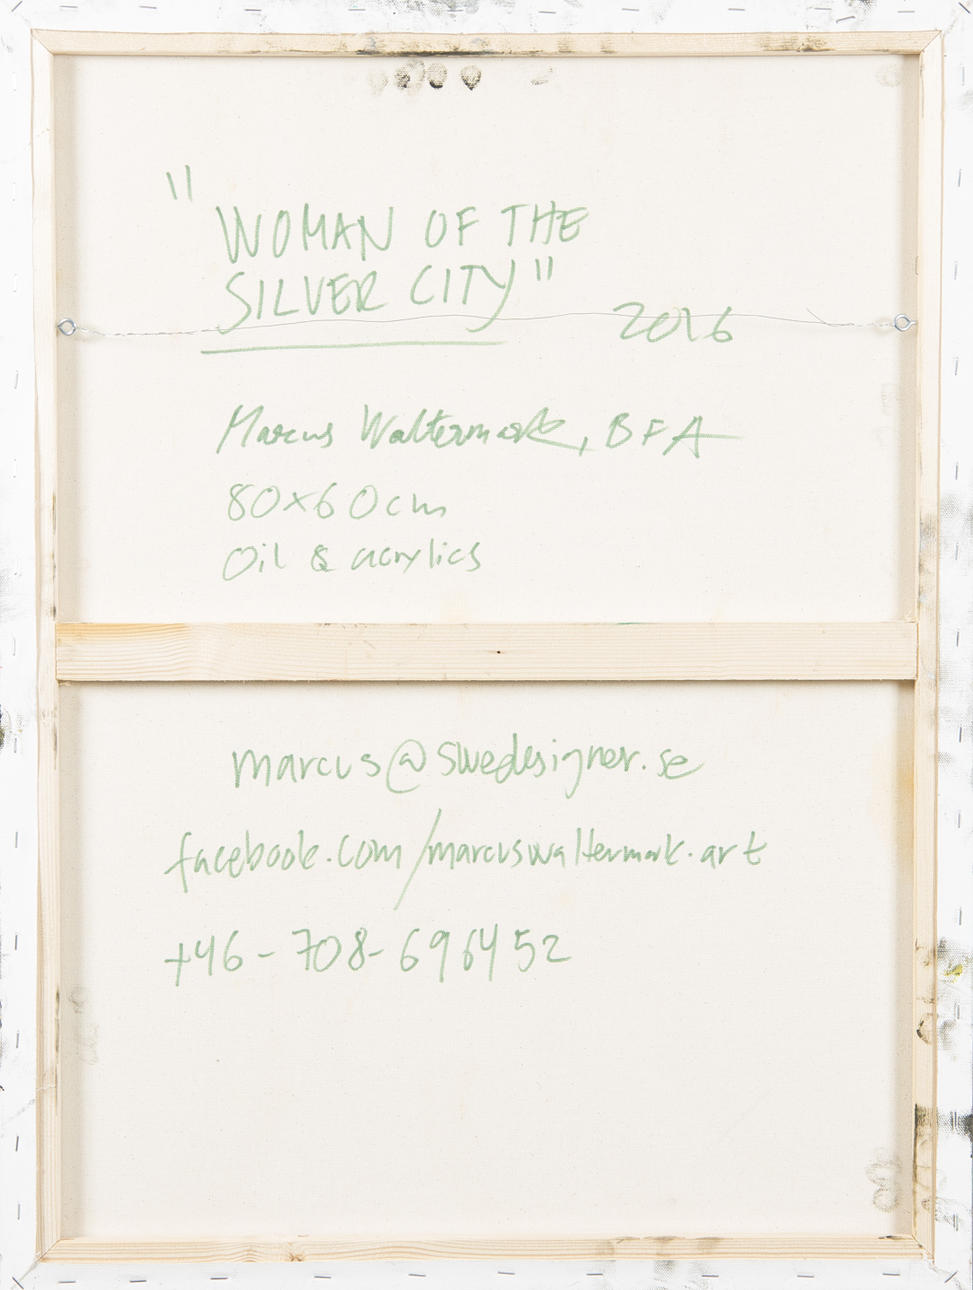 "WOMAN OF THE
SILVER CITY"
2016
Marcus Waltermark, BFA
80x60cm
Oil & acrylics
marcus@swedesigner.se
facebook.com/marcuswaltermark.art
+46-708-696452